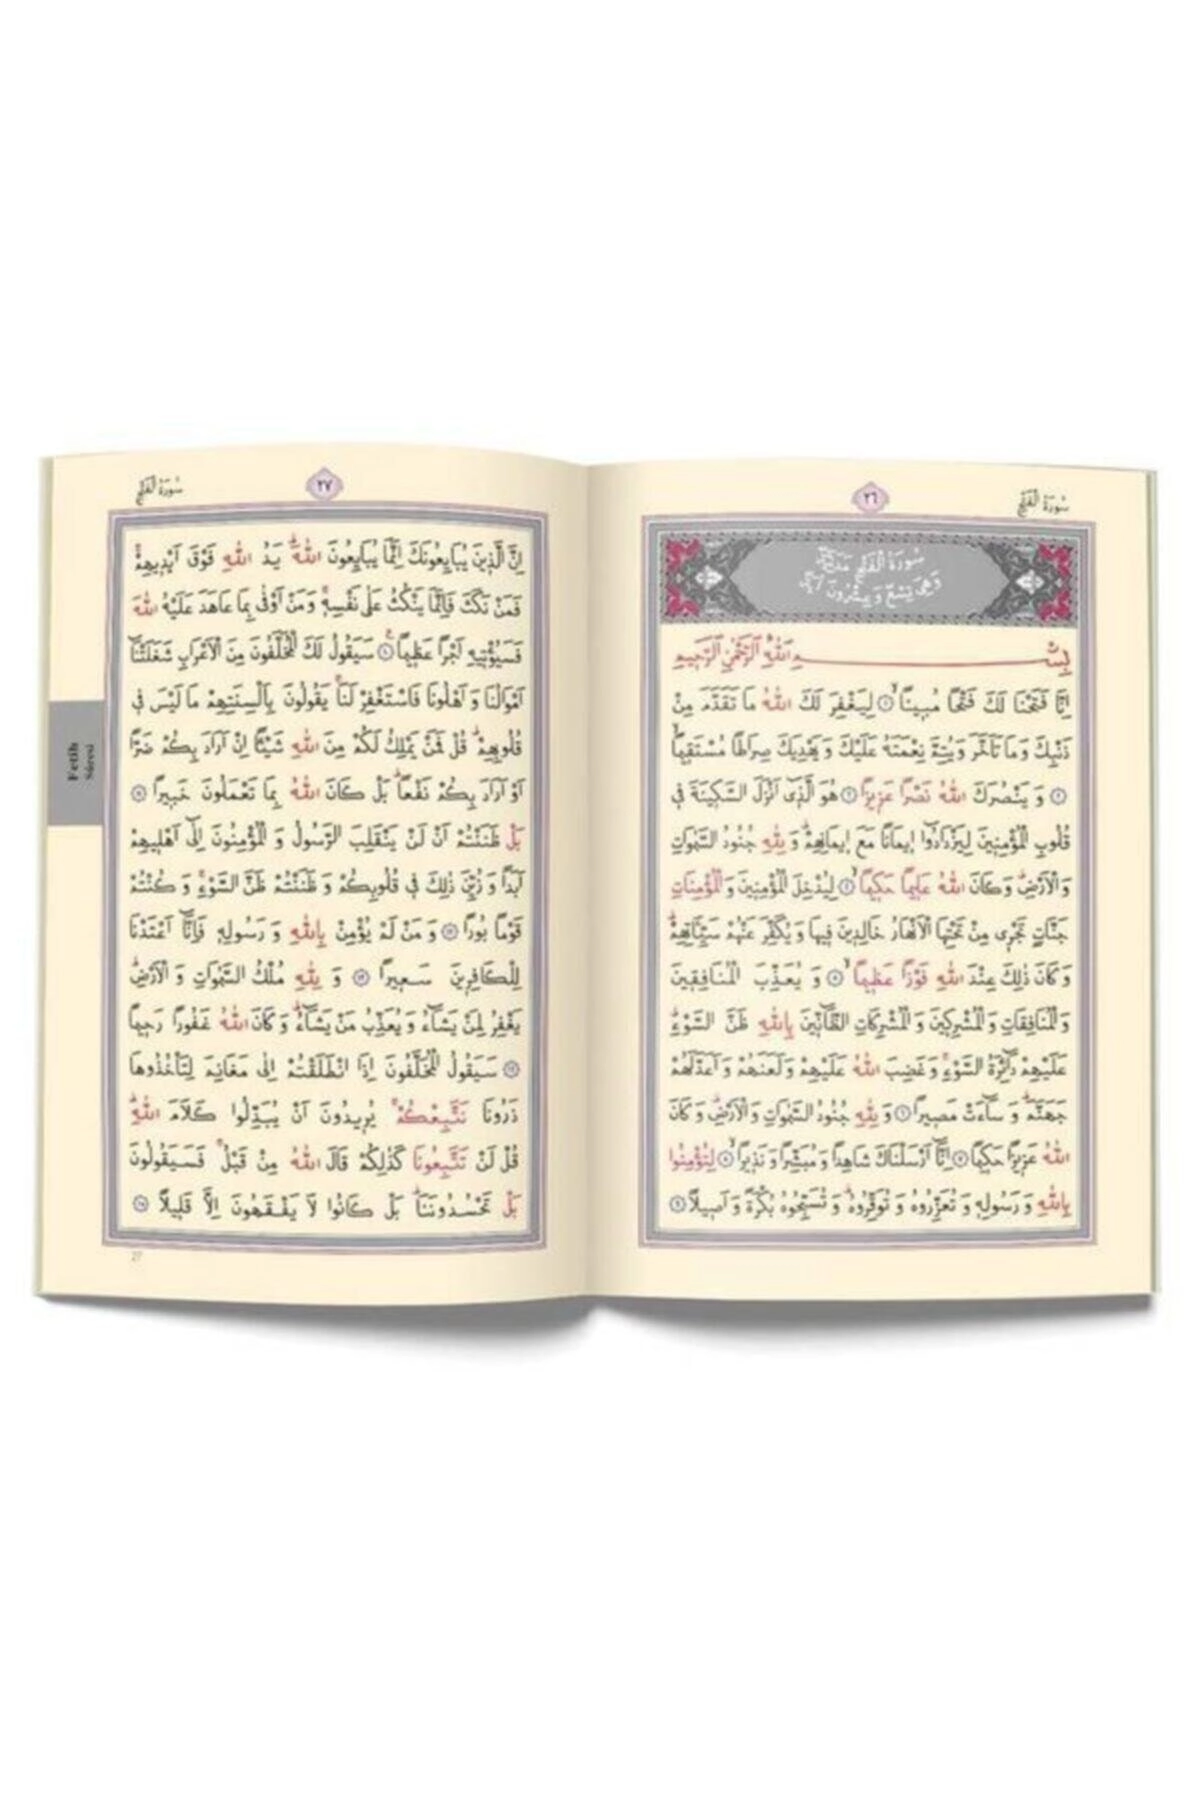 سُورَةُ الْفَتْحِ
٢٦
سُورَةُ الْفَتْحِ مَدَنِيَّةٌ
وَهِيَ تِسْعٌ وَعِشْرُونَ اٰيَةً
بِسْمِ اللّٰهِ الرَّحْمٰنِ الرَّحِيمِ
اِنَّا فَتَحْنَا لَكَ فَتْحًا مُبِينًاۙ ﴿١﴾ لِيَغْفِرَ لَكَ اللّٰهُ مَا تَقَدَّمَ مِنْ
ذَنْبِكَ وَمَا تَاَخَّرَ وَيُتِمَّ نِعْمَتَهُ عَلَيْكَ وَيَهْدِيَكَ صِرَاطًا مُسْتَقِيمًاۙ
﴿٢﴾ وَيَنْصُرَكَ اللّٰهُ نَصْرًا عَزِيزًا ﴿٣﴾ هُوَ الَّذِٓى اَنْزَلَ السَّكِينَةَ فِى
قُلُوبِ الْمُؤْمِنِينَ لِيَزْدَادُٓوا اِيمَانًا مَعَ اِيمَانِهِمْۜ وَلِلّٰهِ جُنُودُ السَّمٰوَاتِ
وَالْاَرْضِۜ وَكَانَ اللّٰهُ عَلِيمًا حَكِيمًاۙ ﴿٤﴾ لِيُدْخِلَ الْمُؤْمِنِينَ وَالْمُؤْمِنَاتِ
جَنَّاتٍ تَجْرِى مِنْ تَحْتِهَا الْاَنْهَارُ خَالِدِينَ فِيهَا وَيُكَفِّرَ عَنْهُمْ سَيِّـَٔاتِهِمْۜ
وَكَانَ ذٰلِكَ عِنْدَ اللّٰهِ فَوْزًا عَظِيمًاۙ ﴿٥﴾ وَيُعَذِّبَ الْمُنَافِقِينَ
وَالْمُنَافِقَاتِ وَالْمُشْرِكِينَ وَالْمُشْرِكَاتِ الظَّٓانِّينَ بِاللّٰهِ ظَنَّ السَّوْءِۜ
عَلَيْهِمْ دَٓائِرَةُ السَّوْءِۚ وَغَضِبَ اللّٰهُ عَلَيْهِمْ وَلَعَنَهُمْ وَاَعَدَّ لَهُمْ
جَهَنَّمَۜ وَسَٓاءَتْ مَصِيرًا ﴿٦﴾ وَلِلّٰهِ جُنُودُ السَّمٰوَاتِ وَالْاَرْضِۜ وَكَانَ
اللّٰهُ عَزِيزًا حَكِيمًا ﴿٧﴾ اِنَّٓا اَرْسَلْنَاكَ شَاهِدًا وَمُبَشِّرًا وَنَذِيرًاۙ ﴿٨﴾ لِتُؤْمِنُوا
بِاللّٰهِ وَرَسُولِهِ وَتُعَزِّرُوهُ وَتُوَقِّرُوهُۜ وَتُسَبِّحُوهُ بُكْرَةً وَاَصِيلًا ﴿٩﴾
٢٧
سُورَةُ الْفَتْحِ
اِنَّ الَّذِينَ يُبَايِعُونَكَ اِنَّمَا يُبَايِعُونَ اللّٰهَۜ يَدُ اللّٰهِ فَوْقَ اَيْدِيهِمْۚ
فَمَنْ نَكَثَ فَاِنَّمَا يَنْكُثُ عَلٰى نَفْسِهِۚ وَمَنْ اَوْفٰى بِمَا عَاهَدَ عَلَيْهُ اللّٰهَ
فَسَيُؤْتِيهِ اَجْرًا عَظِيمًا ﴿١٠﴾ سَيَقُولُ لَكَ الْمُخَلَّفُونَ مِنَ الْاَعْرَابِ شَغَلَتْنَٓا
اَمْوَالُنَا وَاَهْلُونَا فَاسْتَغْفِرْ لَنَاۚ يَقُولُونَ بِاَلْسِنَتِهِمْ مَا لَيْسَ فِى
قُلُوبِهِمْۜ قُلْ فَمَنْ يَمْلِكُ لَكُمْ مِنَ اللّٰهِ شَيْـًٔا اِنْ اَرَادَ بِكُمْ ضَرًّا
اَوْ اَرَادَ بِكُمْ نَفْعًاۜ بَلْ كَانَ اللّٰهُ بِمَا تَعْمَلُونَ خَبِيرًا ﴿١١﴾
بَلْ ظَنَنْتُمْ اَنْ لَنْ يَنْقَلِبَ الرَّسُولُ وَالْمُؤْمِنُونَ اِلٰٓى اَهْلِيهِمْ
اَبَدًا وَزُيِّنَ ذٰلِكَ فِى قُلُوبِكُمْ وَظَنَنْتُمْ ظَنَّ السَّوْءِۚ وَكُنْتُمْ
قَوْمًا بُورًا ﴿١٢﴾ وَمَنْ لَمْ يُؤْمِنْ بِاللّٰهِ وَرَسُولِهِ فَاِنَّٓا اَعْتَدْنَا
لِلْكَافِرِينَ سَعِيرًا ﴿١٣﴾ وَلِلّٰهِ مُلْكُ السَّمٰوَاتِ وَالْاَرْضِۜ
يَغْفِرُ لِمَنْ يَشَٓاءُ وَيُعَذِّبُ مَنْ يَشَٓاءُۜ وَكَانَ اللّٰهُ غَفُورًا رَحِيمًا
﴿١٤﴾ سَيَقُولُ الْمُخَلَّفُونَ اِذَا انْطَلَقْتُمْ اِلٰى مَغَانِمَ لِتَأْخُذُوهَا
ذَرُونَا نَتَّبِعْكُمْۚ يُرِيدُونَ اَنْ يُبَدِّلُوا كَلَامَ اللّٰهِۜ
قُلْ لَنْ تَتَّبِعُونَا كَذٰلِكُمْ قَالَ اللّٰهُ مِنْ قَبْلُۚ فَسَيَقُولُونَ
بَلْ تَحْسُدُونَنَاۜ بَلْ كَانُوا لَا يَفْقَهُونَ اِلَّا قَلِيلًا ﴿١٥﴾
27
Fetih
Sûresi